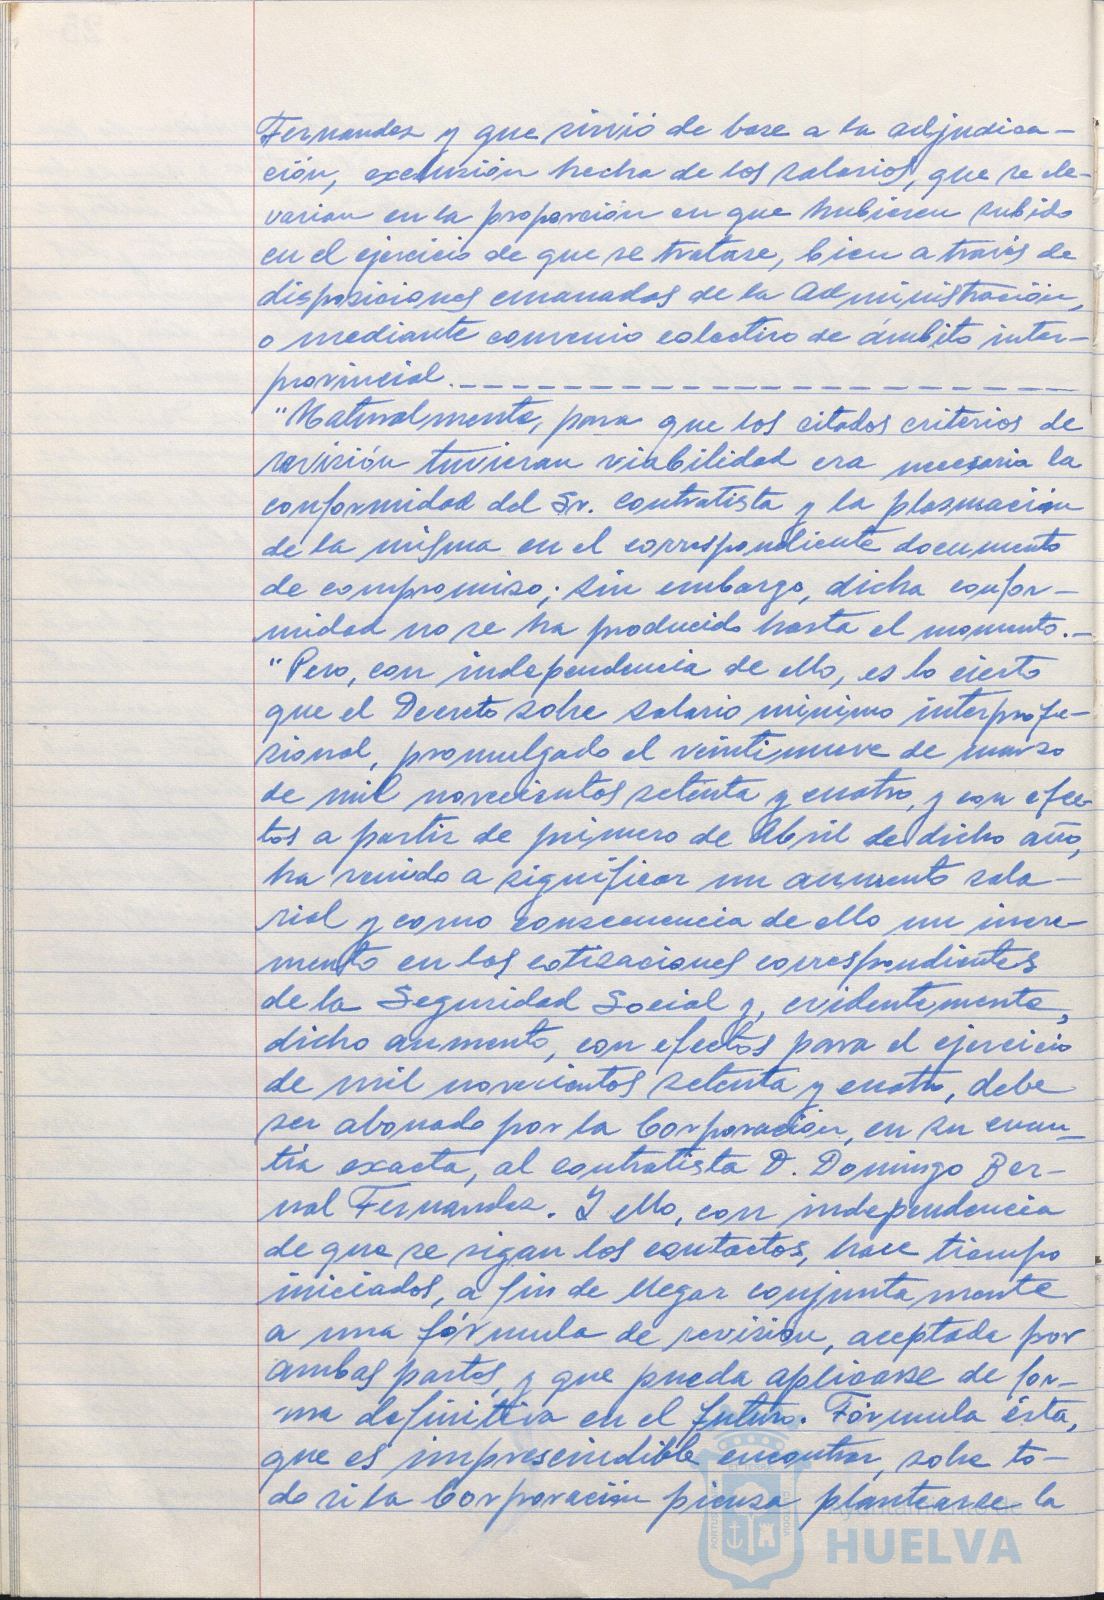 Fernandez y que sirvió de base a la adjudica-
ción, exclusión hecha de los salarios, que se ele-
varian en la proporción en que hubiesen subido
en el ejercicio de que se tratase, bien a través de
disposiciones emanadas de la Administración,
o mediante convenio colectivo de ámbito inter-
provincial.
"Naturalmente, para que los citados criterios de
revisión tuvieran viabilidad era necesaria la
conformidad del Sr. Contratista y la plasmación
de la misma en el correspondiente documento
de compromiso; sin embargo, dicha confor-
midad no se ha producido hasta el momento.-
"Pero, con independencia de ello, es lo cierto
que el Decreto sobre salario minimo interprofe-
sional, promulgado el veintinueve de marzo
de mil novecientos setenta y cuatro, y con efec-
tos a partir de primero de Abril de dicho año,
ha venido a significar un aumento sala-
rial y como consecuencia de ello un incre-
mento en las cotizaciones correspondientes
de la Seguridad Social y, evidentemente,
dicho aumento, con efectos para el ejercicio
de mil novecientos setenta y cuatro, debe
ser abonado por la Corporación, en su cuan-
tía exacta, al contratista D. Domingo Ber-
nal Fernandez. Y ello, con independencia
de que se sigan los contactos, hace tiempo
iniciados, a fin de llegar conjuntamente
a una fórmula de revisión, aceptada por
ambas partes, y que pueda aplicarse de for-
ma definitiva en el futuro. Fórmula ésta,
que es imprescindible encontrar, sobre to-
do si la Corporación piensa plantearse la
Ayuntamiento de
HUELVA